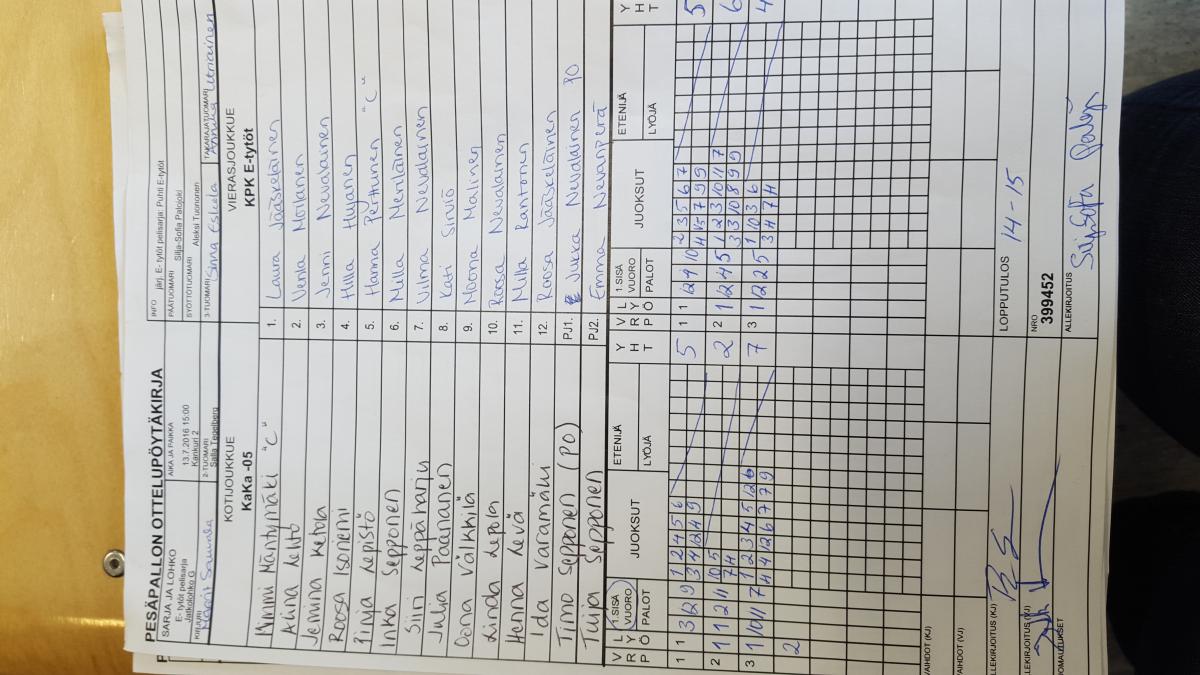 PESÄPALLON OTTELUPÖYTÄKIRJA
SARJA JA LOHKO
E- tytöt pelisarja
Jatkolohko G
AIKA JA PAIKKA
13.7.2016 15:00
Kankuri 2
INFO järj. E- tytöt pelisarja: Puhti E-tytöt
PÄÄTUOMARI Silja-Sofia Palojoki
SYÖTTÖTUOMARI Aleksi Tuononen
KIRJURI
2-TUOMARI
Salla Tegelberg
3-TUOMARI
TAKARAJATUOMARI
KOTIJOUKKUE
KaKa -05
VIERASJOUKKUE
KPK E-tytöt
Mimmi Mäntymäki "C" 1. Laura Jääskeläinen
Alina Lehto 2. Venla Moilanen
Jemina Ketola 3. Jenni Nevalainen
Roosa Isoniemi 4. Hilla
Pinja Lepistö 5. Hanna Perttunen "C"
Inka Sepponen 6. Milla
Siiri Leppäharju 7. Vilma Nevalainen
Julia Paananen 8. Kati Sirviö
Oona Välkkilä 9. Moona Malinen
Linda Lepola 10. Roosa Nevalainen
Henna Hevä 11. Milla Rantonen
Ida Varamäki 12. Roosa Jääskeläinen
Timo Sepponen (PO) PJ1. Jukka Nevalainen PO
Tuija Sepponen PJ2. Emma Nevanperä
V R P L Y Ö 1.SISÄ VUORO PALOT JUOKSUT ETENIJÄ LYÖJÄ Y H T
V R P L Y Ö 1.SISÄ VUORO PALOT JUOKSUT ETENIJÄ LYÖJÄ Y H T
1 1 3 12 9 1 2 4 5 6 5
3 4 12 4 9
1 1 12 9 10 2 3 5 6 7 5
4 15 7 9 9
2 1 1 12 11 10 5 2
7 4
2 1 12 4 5 1 2 3 10 11 7 6
3 3 10 8 9 9
3 1 10 11 7 1 2 3 4 5 12 6 7
4 4 12 6 7 7 9
3 1 12 2 5 1 10 3 6 4
3 4 7 4
2
VAIHDOT (KJ)
VAIHDOT (VJ)
LOPPUTULOS 14-15
ALLEKIRJOITUS (KJ)
ALLEKIRJOITUS (VJ)
NRO
399452
ALLEKIRJOITUS
HUOMAUTUKSET